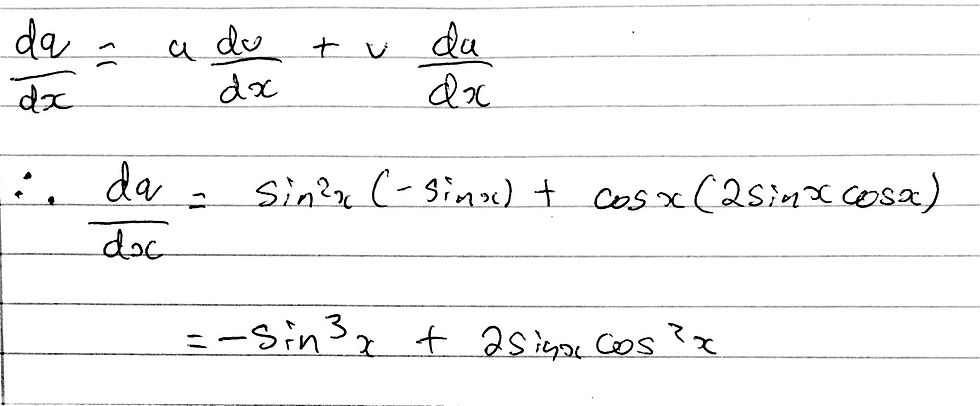 da/dx = u dv/dx + v du/dx
∴ da/dx = sin²x (-sinx) + cosx (2sinx cosx)
= -sin³x + 2sinx cos²x